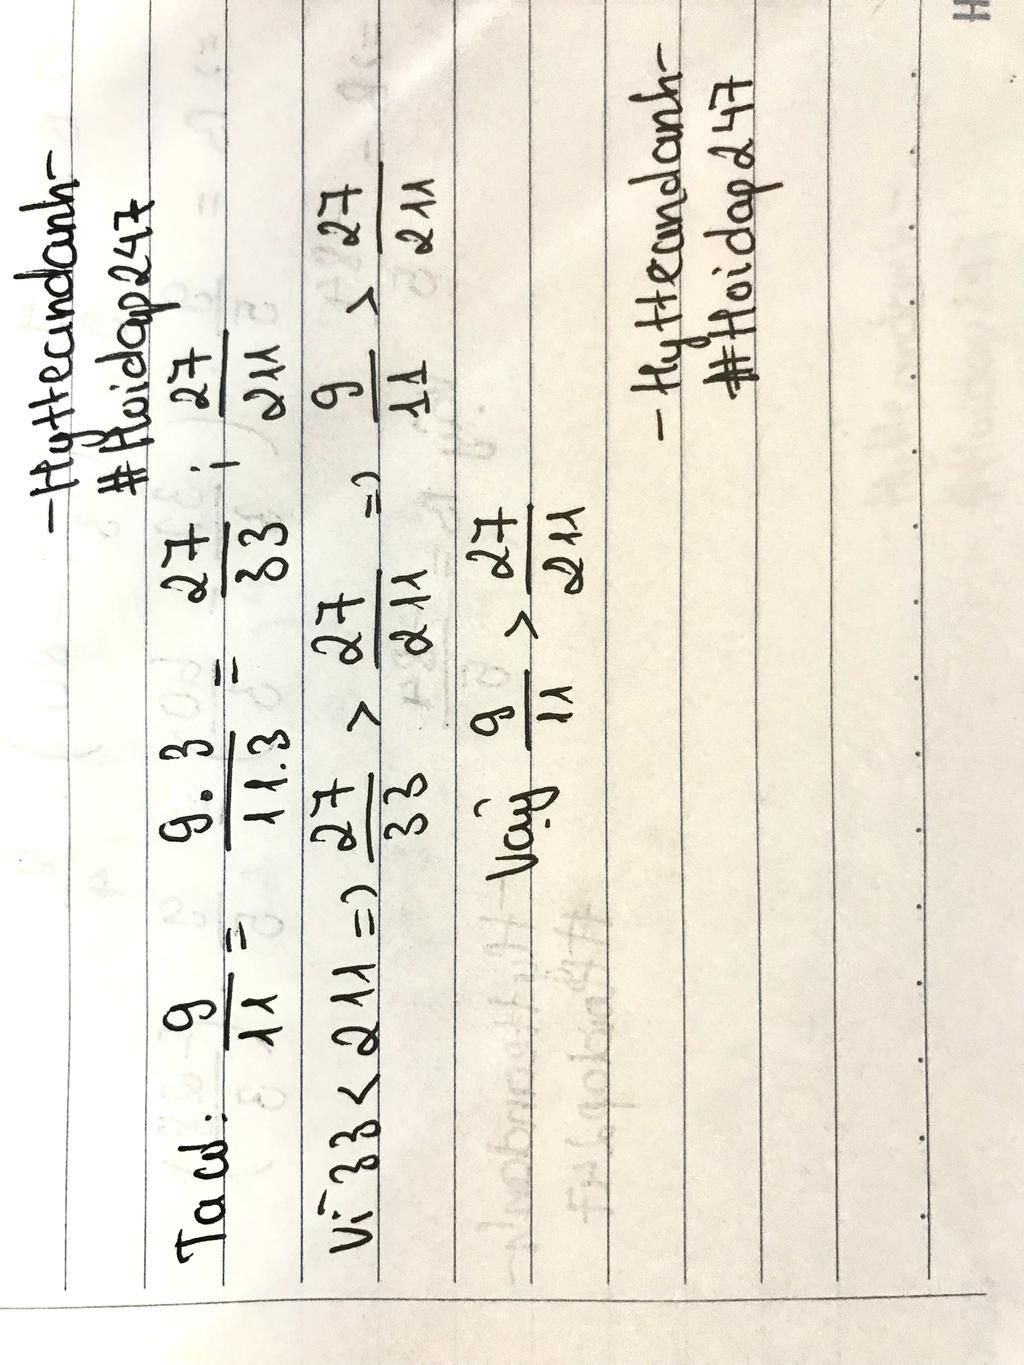 -Hytteandanh-
#Hoidap247
Ta có: 9/11 = 9.3/11.3 = 27/33 ; 27/211
Vì 33 < 211 => 27/33 > 27/211 => 9/11 > 27/211
Vậy 9/11 > 27/211
-Hytteandanh-
#Hoidap247